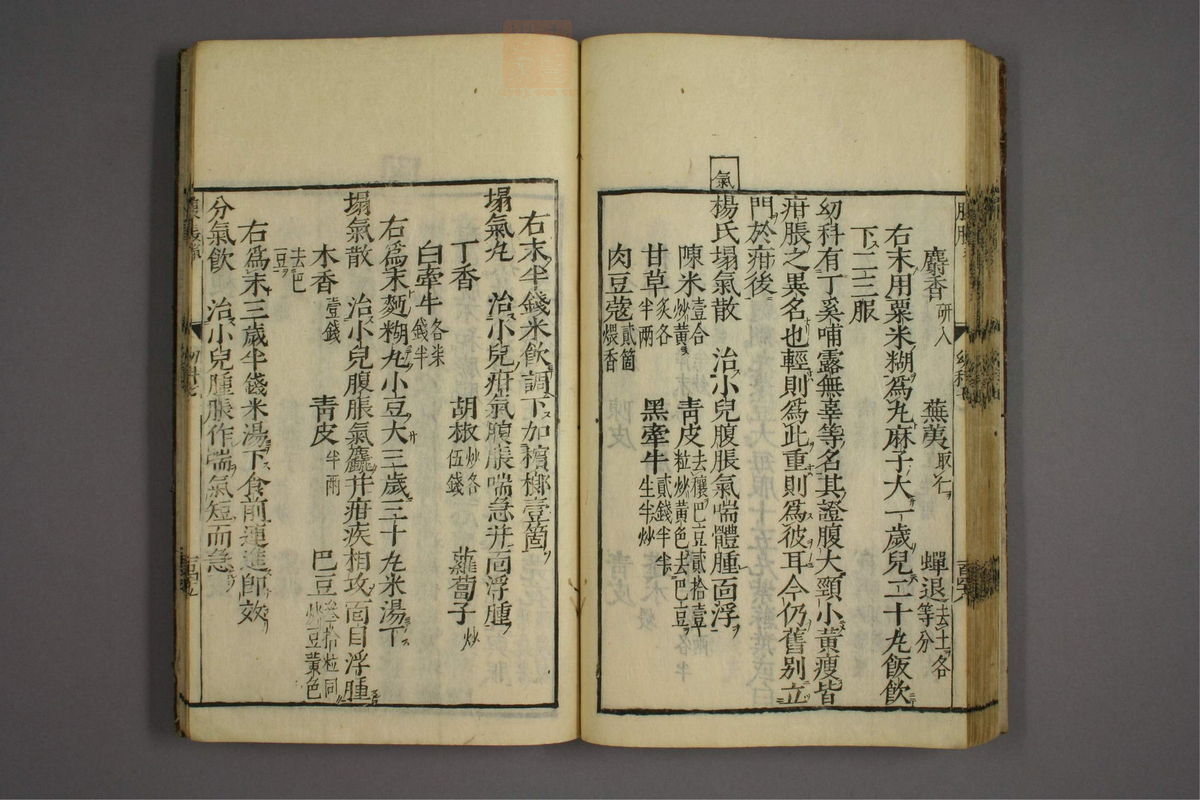 麝香 研入 蕪荑 取仁 蟬退 去土各等分
右末用粟米糊爲丸麻子大一歲兒二十丸飯飲
下二三服
幼科有丁奚哺露無辜等名其證腹大頸小黃瘦皆
疳脹之異名也輕則爲此重則爲彼耳今仍舊别立
門於疳後
氣
楊氏塌氣散 治小兒腹脹氣喘體腫面浮
陳米 壹合炒黃 青皮 去穰巴豆貳拾壹粒炒黃色去巴豆
甘草 炙各半兩 黑牽牛 貳錢半半生半炒
肉豆蔻 貳箇煨香
右末半錢米飲調下加檳榔壹箇
塌氣丸 治小兒疳氣腹脹喘急并面浮腫
丁香 胡椒 炒各伍錢 蘿蔔子 炒
白牽牛 各柒錢半
右爲末麵糊丸小豆大三歲三十丸米湯下
塌氣散 治小兒腹脹氣麤并疳疾相攻面目浮腫
木香 壹錢 青皮 半兩 巴豆 叁拾粒同炒豆黃色
去巴豆
右爲末三歲半錢米湯下食前連進即效
分氣飲 治小兒腫脹作喘氣短而急